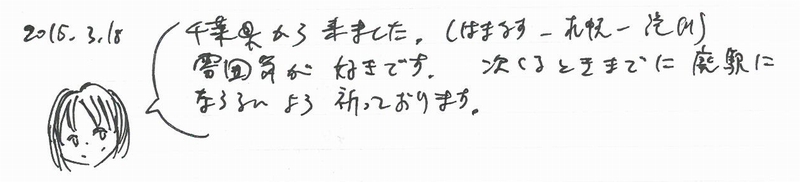 2015.3.18
千葉県から来ました。(はまなす - 札幌 -
雰囲気が好きです。次くるときまでに廃駅に
ならないよう祈っております。